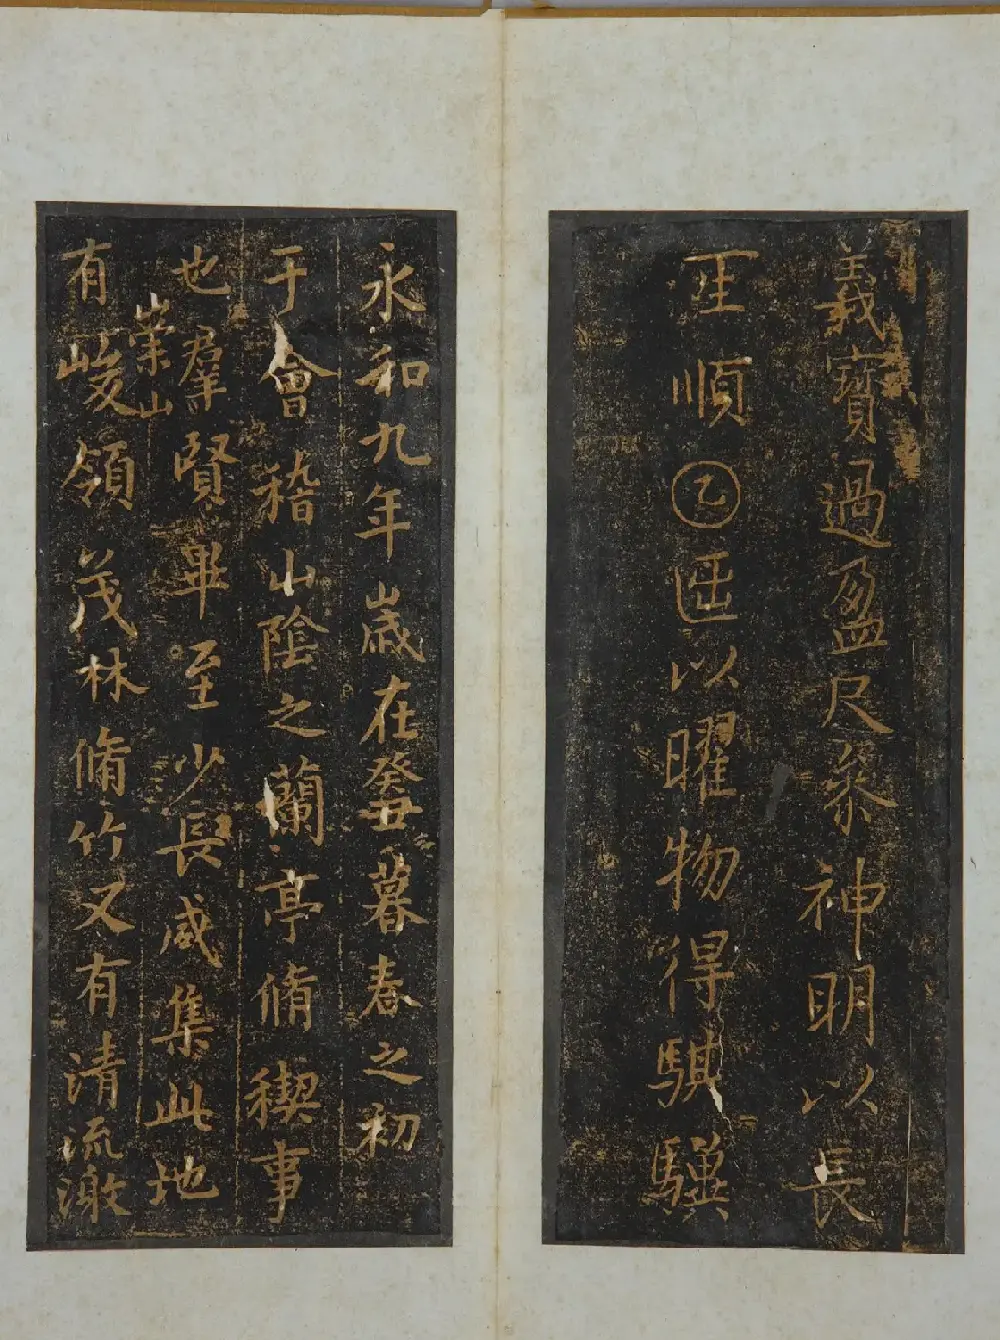 義寶過盈尺叅神明以長
順乙以曜物得騏驥
永和九年歲在癸丑暮春之初
于會稽山陰之蘭亭脩稧事
也羣賢畢至少長咸集此地
有崇山峻領茂林脩竹又有清流激